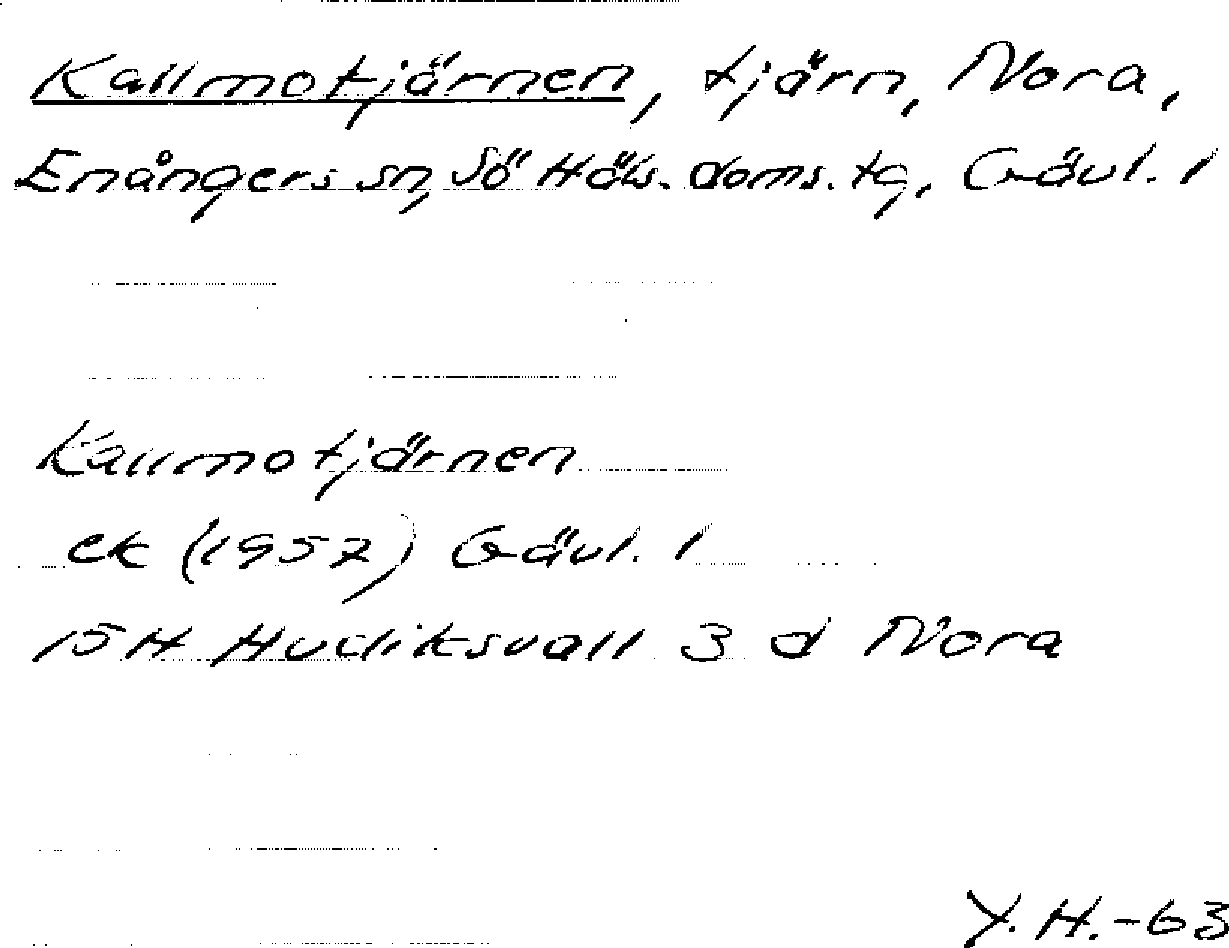 Kallmotjärnen, tjärn, Nora,
Enångers sn, Sö Häls. doms. tg, Gävl. l
Källmotjärnen
ek (1957) Gävl. l
15 H Hudiksvall 3 d Nora
Y. H. -63